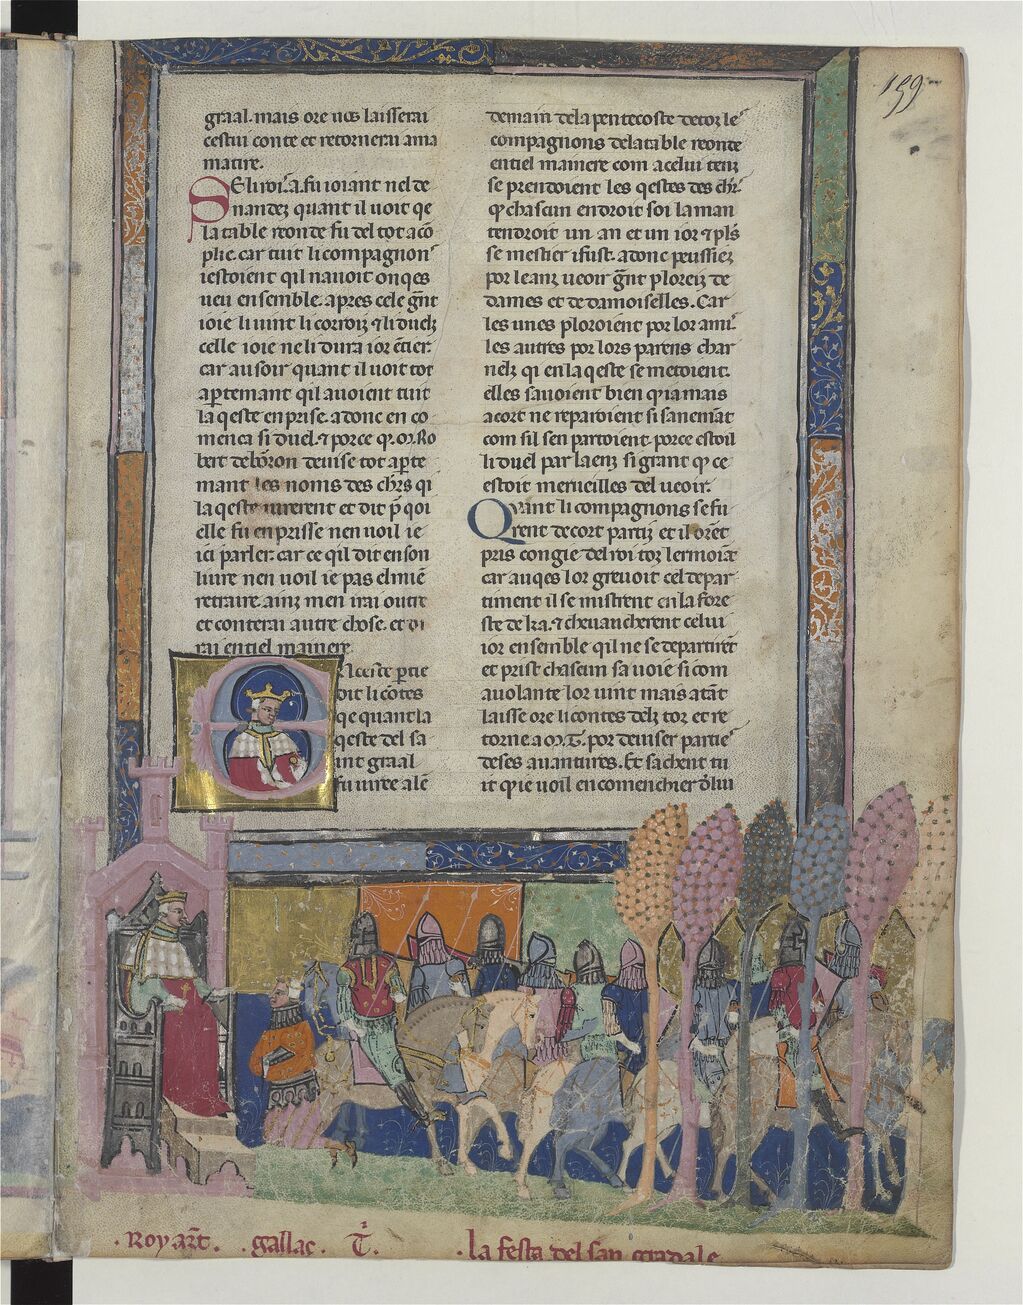 199
graal. mais ore uos laisserai
cestui conte et retornerai a ma
matire.
Seli roi .a. fu ioiant nel de
mandez quant il uoit qe
la table reonde fu del tot aco
plie. car tuit li compagnon
iestoient qil nauoit onqes
ueu ensemble. apres cele gnt
ioie li uint li corroiz ⁊ li duelz
celle ioie ne li dura ior entier.
car au soir quant il uoit tot
apertemant qil auoient tuit
la qeste enprise. adonc en co
menca si duel. ⁊ por ce q. m. Ro
bert de boron deuise tot aperte
mant les noms des chrs qi
la qeste iurerent et dit p qoi
elle fu enprisse nen uoil ie
ici parler. car ce qil dit en son
liure nen uoil ie pas
retraire ainz men irai outre
et conterai autre chose. et di
rai en tiel mainere.
En ceste ptie
dit li cotes
qe quant la
qeste del sa
int graal
fu uitee a le
demain de la pentecoste de toz le
compagnons de la table reonde
en tiel maniere com a celui tenz
se prendoient les qestes des chr
q chascun endroit soi la man
tendroit un an et un ior ⁊ pls
se mestier i fust. adonc peussiez
por leanz ueoir gnt ploreiz de
dames et de damoiselles. Car
les unes ploroient por lor ami
les autres por lors parens char
nelz qi en la qeste se metoient.
elles sauoient bien qi a mais
a cort ne repairoient si sanemat
com sil sen partoient. por ce estoit
li duel par laenz si grant q ce
estoit merueilles del ueoir.
Qvant li compagnons se fu
rent de cort partiz et il oret
pris congie del roi toz lermoiat
car auqes lor greuoit cel depar
timent il se mistrent en la fore
ste de ka. ⁊ cheuaucherent celui
ior ensemble qil ne se departiret
et prist chascun sa uoie si com
auolante lor uint mais atat
laisse ore li contes delz toz et re
torne a m. G. por deuiser partie
de ses auantures. Et sachent tu
it qe ie uoil encomencher d lui
. Roy art. . gallac. T. . la festa del san gradale